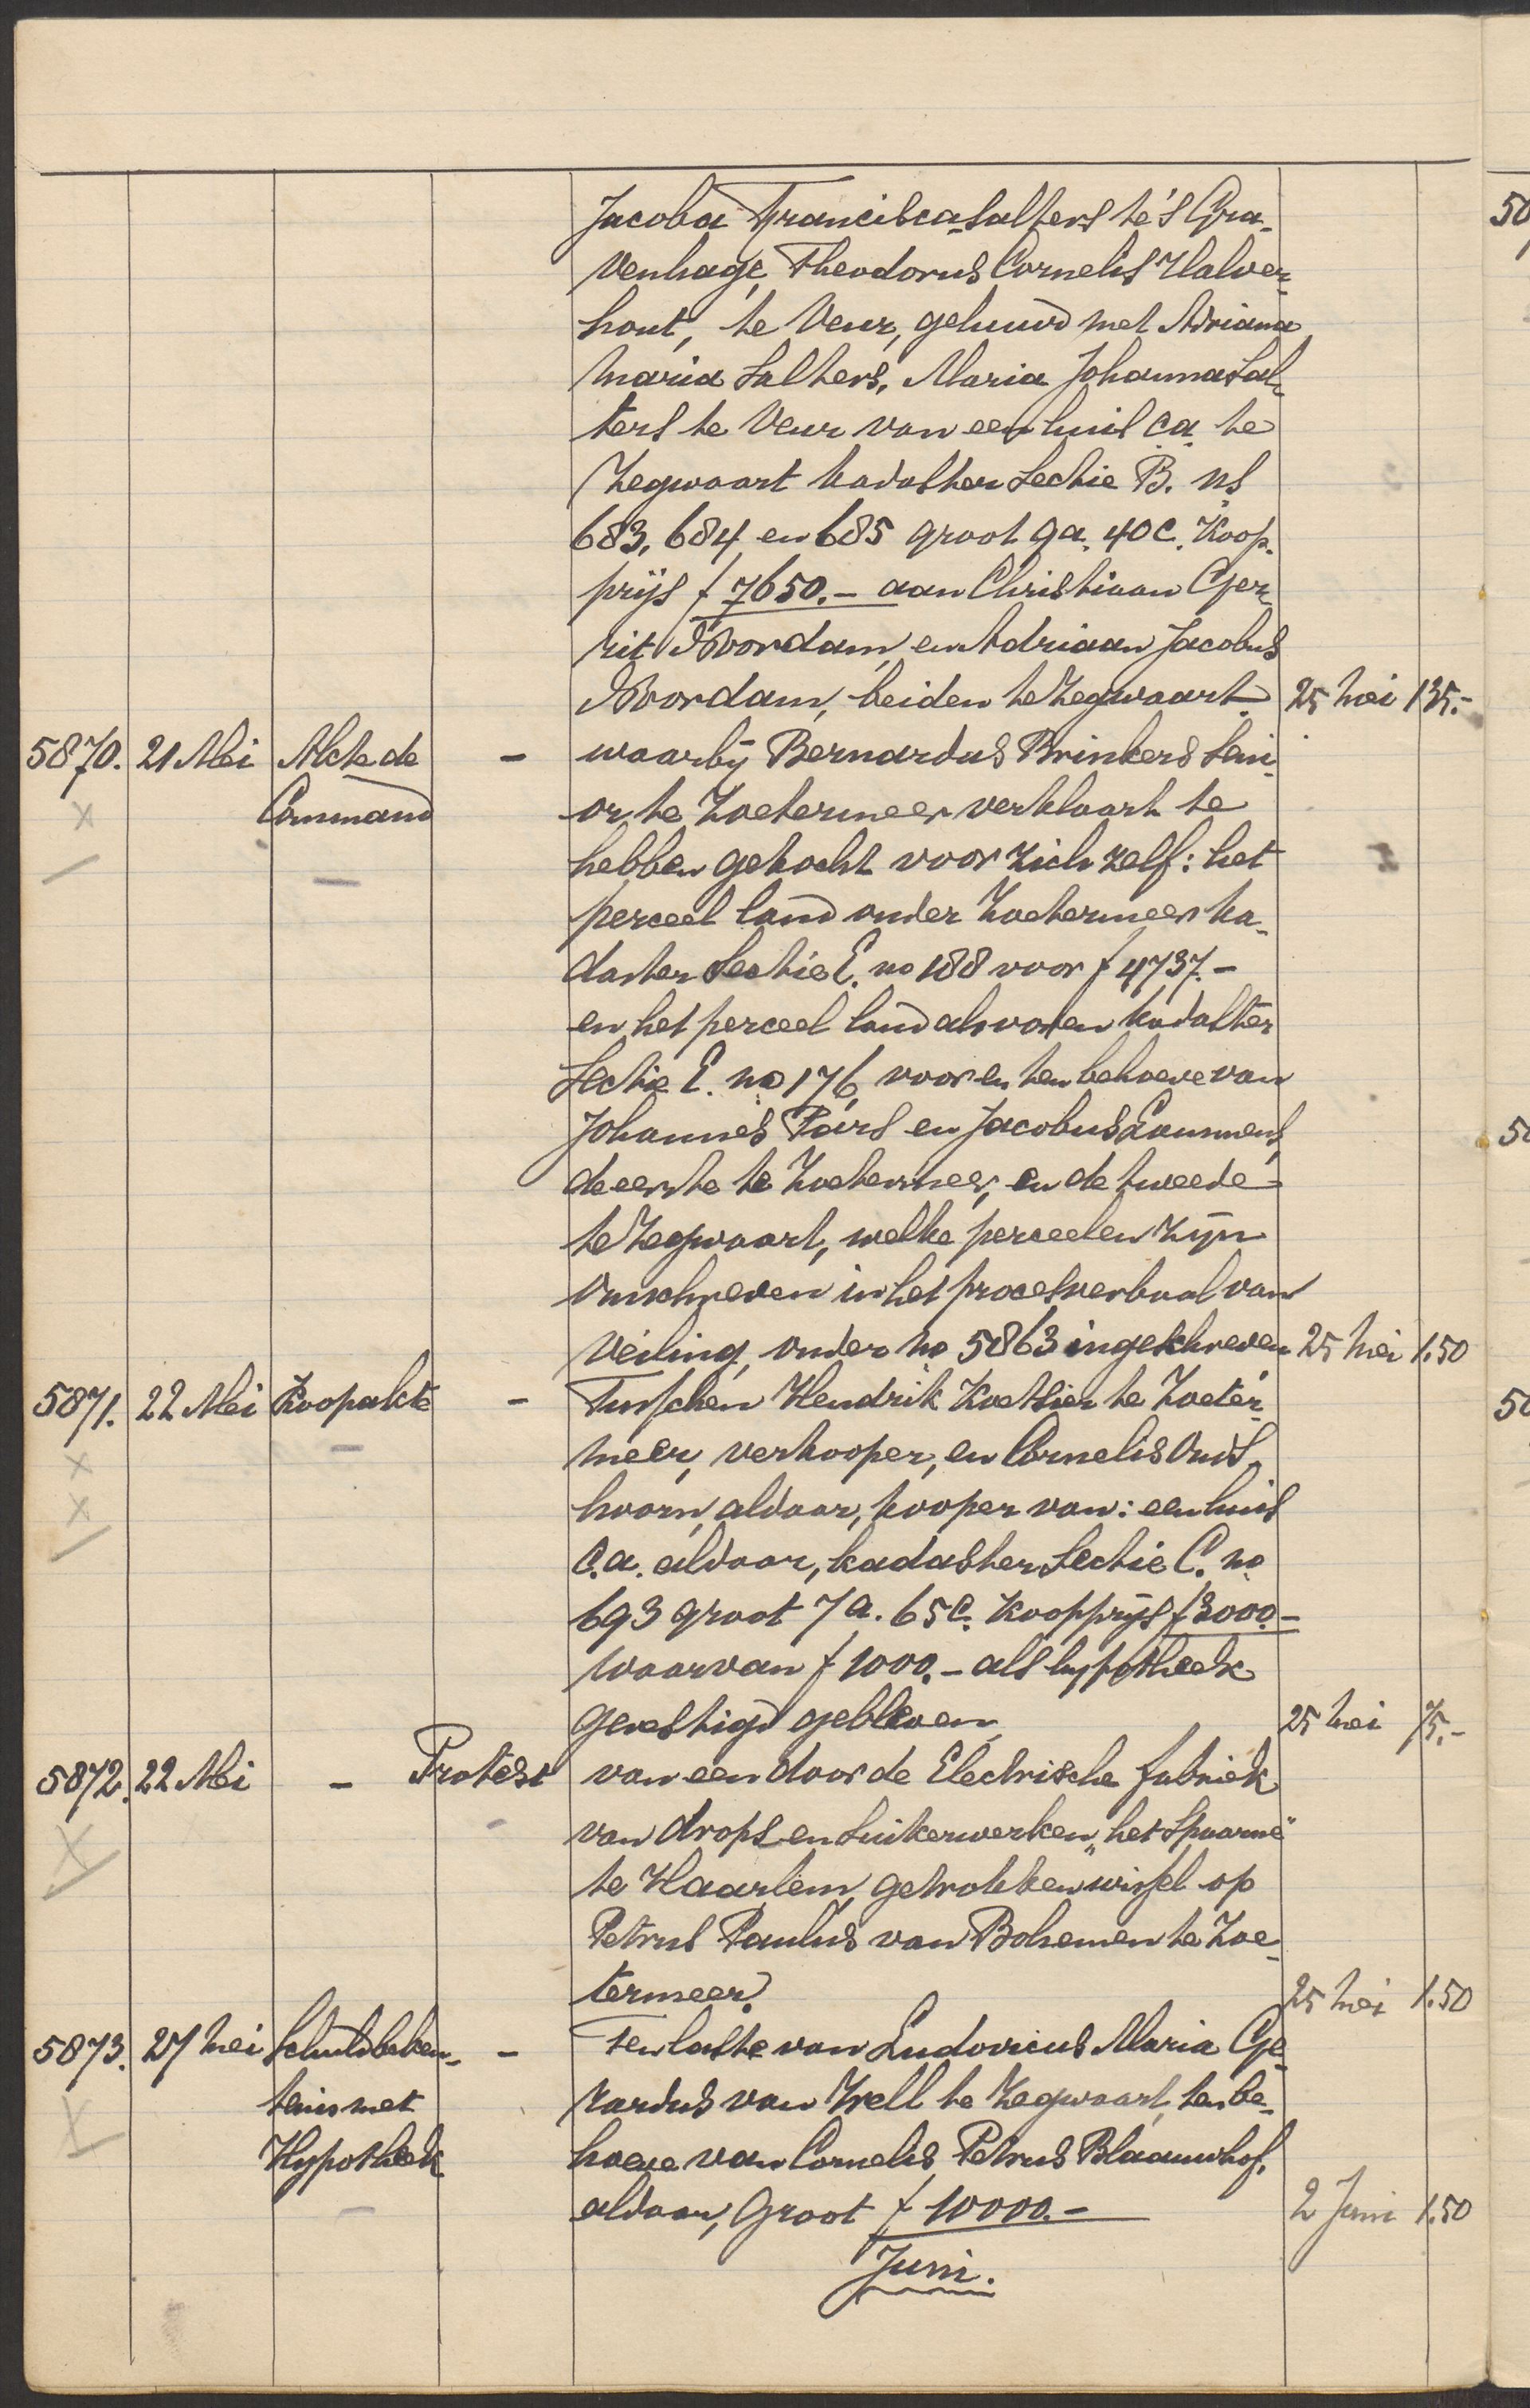 Jacoba Francisca Salters te 's Gra-
venhage, Theodorus Cornelis Halver-
hout, te Veur, gehuwd met Adriana
Maria Salters, Maria Johanna Sal-
ters te Veur van een huis c.a. te
Zegwaart kadaster Sectie B. ns
683, 684 en 685 groot 9 a. 40 c. Koop-
prijs f 7650.- aan Christiaan Ger-
rit Noordam, en Adriaan Jacobus
Noordam, beiden te Zegwaart. 25 Mei 135.-
5870. 21 Mei Akte de - waarbij Bernardus Brinkers Seni-
Command or te Zoetermeer verklaart te
hebben gekocht voor zich zelf: het
perceel land onder Zoetermeer ka-
daster Sectie E. no 188 voor f 4737.-
en het perceel land als voren kadaster
Sectie E. no 176, voor en ten behoeve van
Johannes Pärs en Jacobus Lammens,
de eerste te Zoetermeer, en de tweede
te Zegwaart, welke perceelen zijn
omschreven in het procesverbaal van
veiling, onder no 5863 ingeschreven 25 Mei 1.50
5871. 22 Mei Koopakte - Tusschen Hendrik Koetsier te Zoeter-
meer, verkooper, en Cornelis Ouds-
hoorn, aldaar, kooper van: een huis
c.a. aldaar, kadaster Sectie C. no
693 groot 7 a. 65 c. Koopprijs f 3000.-
waarvan f 1000.- als hypotheek
gevestigd gebleven 25 Mei 75.-
5872. 22 Mei - Protest van een door de Electrische fabriek
van drops en suikerwerken „het Spaarne”
te Haarlem getrokken wissel op
Petrus Paulus van Bohemen te Zoe-
termeer. 25 Mei 1.50
5873. 27 Mei Schuldbeken- - Ten laste van Ludovicus Maria Ge-
tenis met rardus van Zell te Zegwaart, ten be-
Hypotheek hoeve van Cornelis Petrus Blaauwhof,
aldaar, Groot f 10000.- 2 Juni 1.50
Juni.